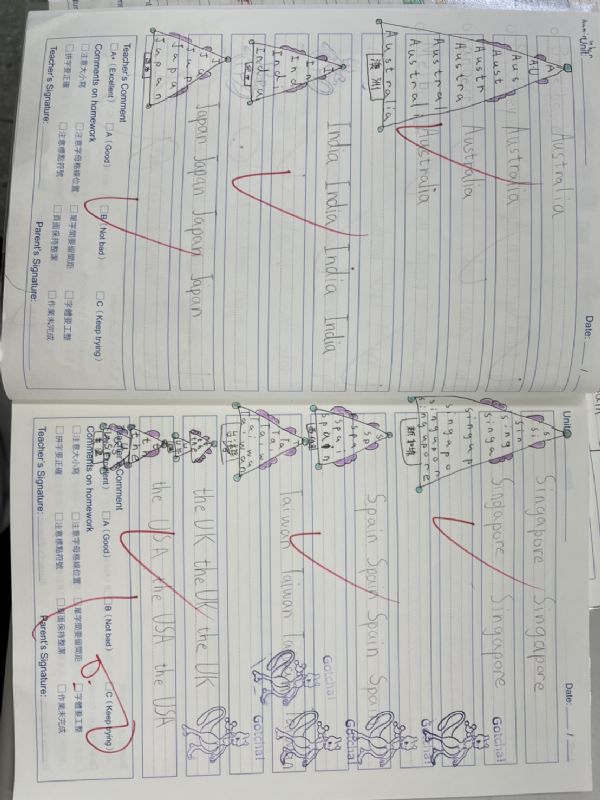 Unit: Date: /
Australia
A
Au
Aus Australia
Aust
Austr Australia
Austra
Australi Australia
Australia
澳洲
I
In India India India India
Ind
Indi
India
印度
J
Ja Japan Japan Japan Japan
Jap
Japa
Japan
日本
Teacher's Comment □A (Excellent) □A (Good) □B (Not bad) □C (Keep trying)
Comments on homework
□注意大小寫 □注意字母格線位置 □單字間要留間距 □字體要工整
□拼字要正確 □注意標點符號 □頁面保持整潔 □作業未完成
Teacher's Signature: Parent's Signature:
Unit: Date: /
s
si Singapore Singapore
sin
sing Singapore Singapore
singa
singap
singapo
singapor
singapore
新加坡
Gotcha!
Gotcha!
s
sp Spain Spain Spain Spain
spa
spai
spain
西班牙
Gotcha!
Ta Taiwan Taiwan
Tai
Taiw
Taiwa
Taiwan
台灣
Gotcha!
Gotcha!
the UK the UK the UK
Gotcha!
the USA the USA the USA
t
th
the
Teacher's Comment □A (Excellent) □A (Good) □B (Not bad) □C (Keep trying)
Comments on homework
□注意大小寫 □注意字母格線位置 □單字間要留間距 □字體要工整
□拼字要正確 □注意標點符號 □頁面保持整潔 □作業未完成
Teacher's Signature: Parent's Signature: